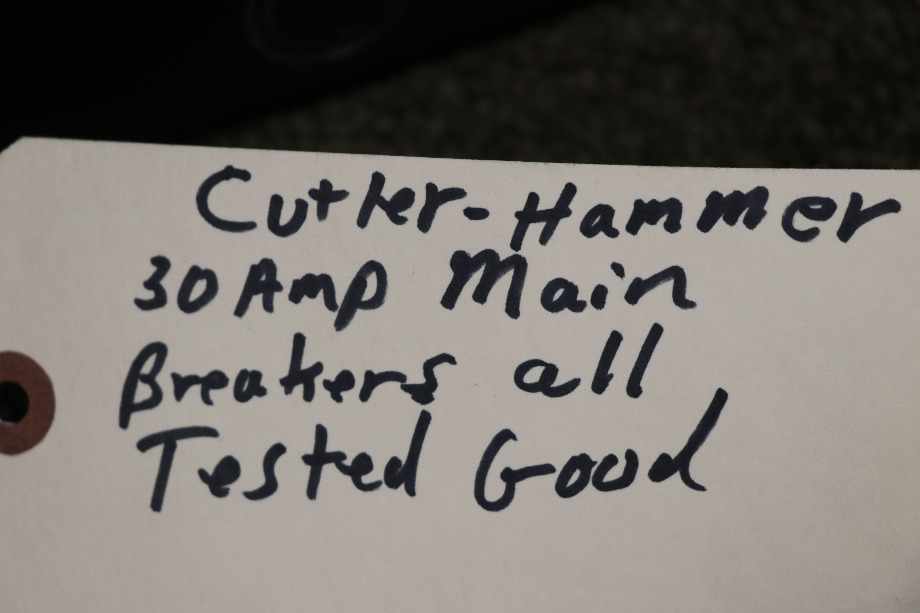 Cutler-Hammer
30 Amp Main
Breakers all
Tested Good